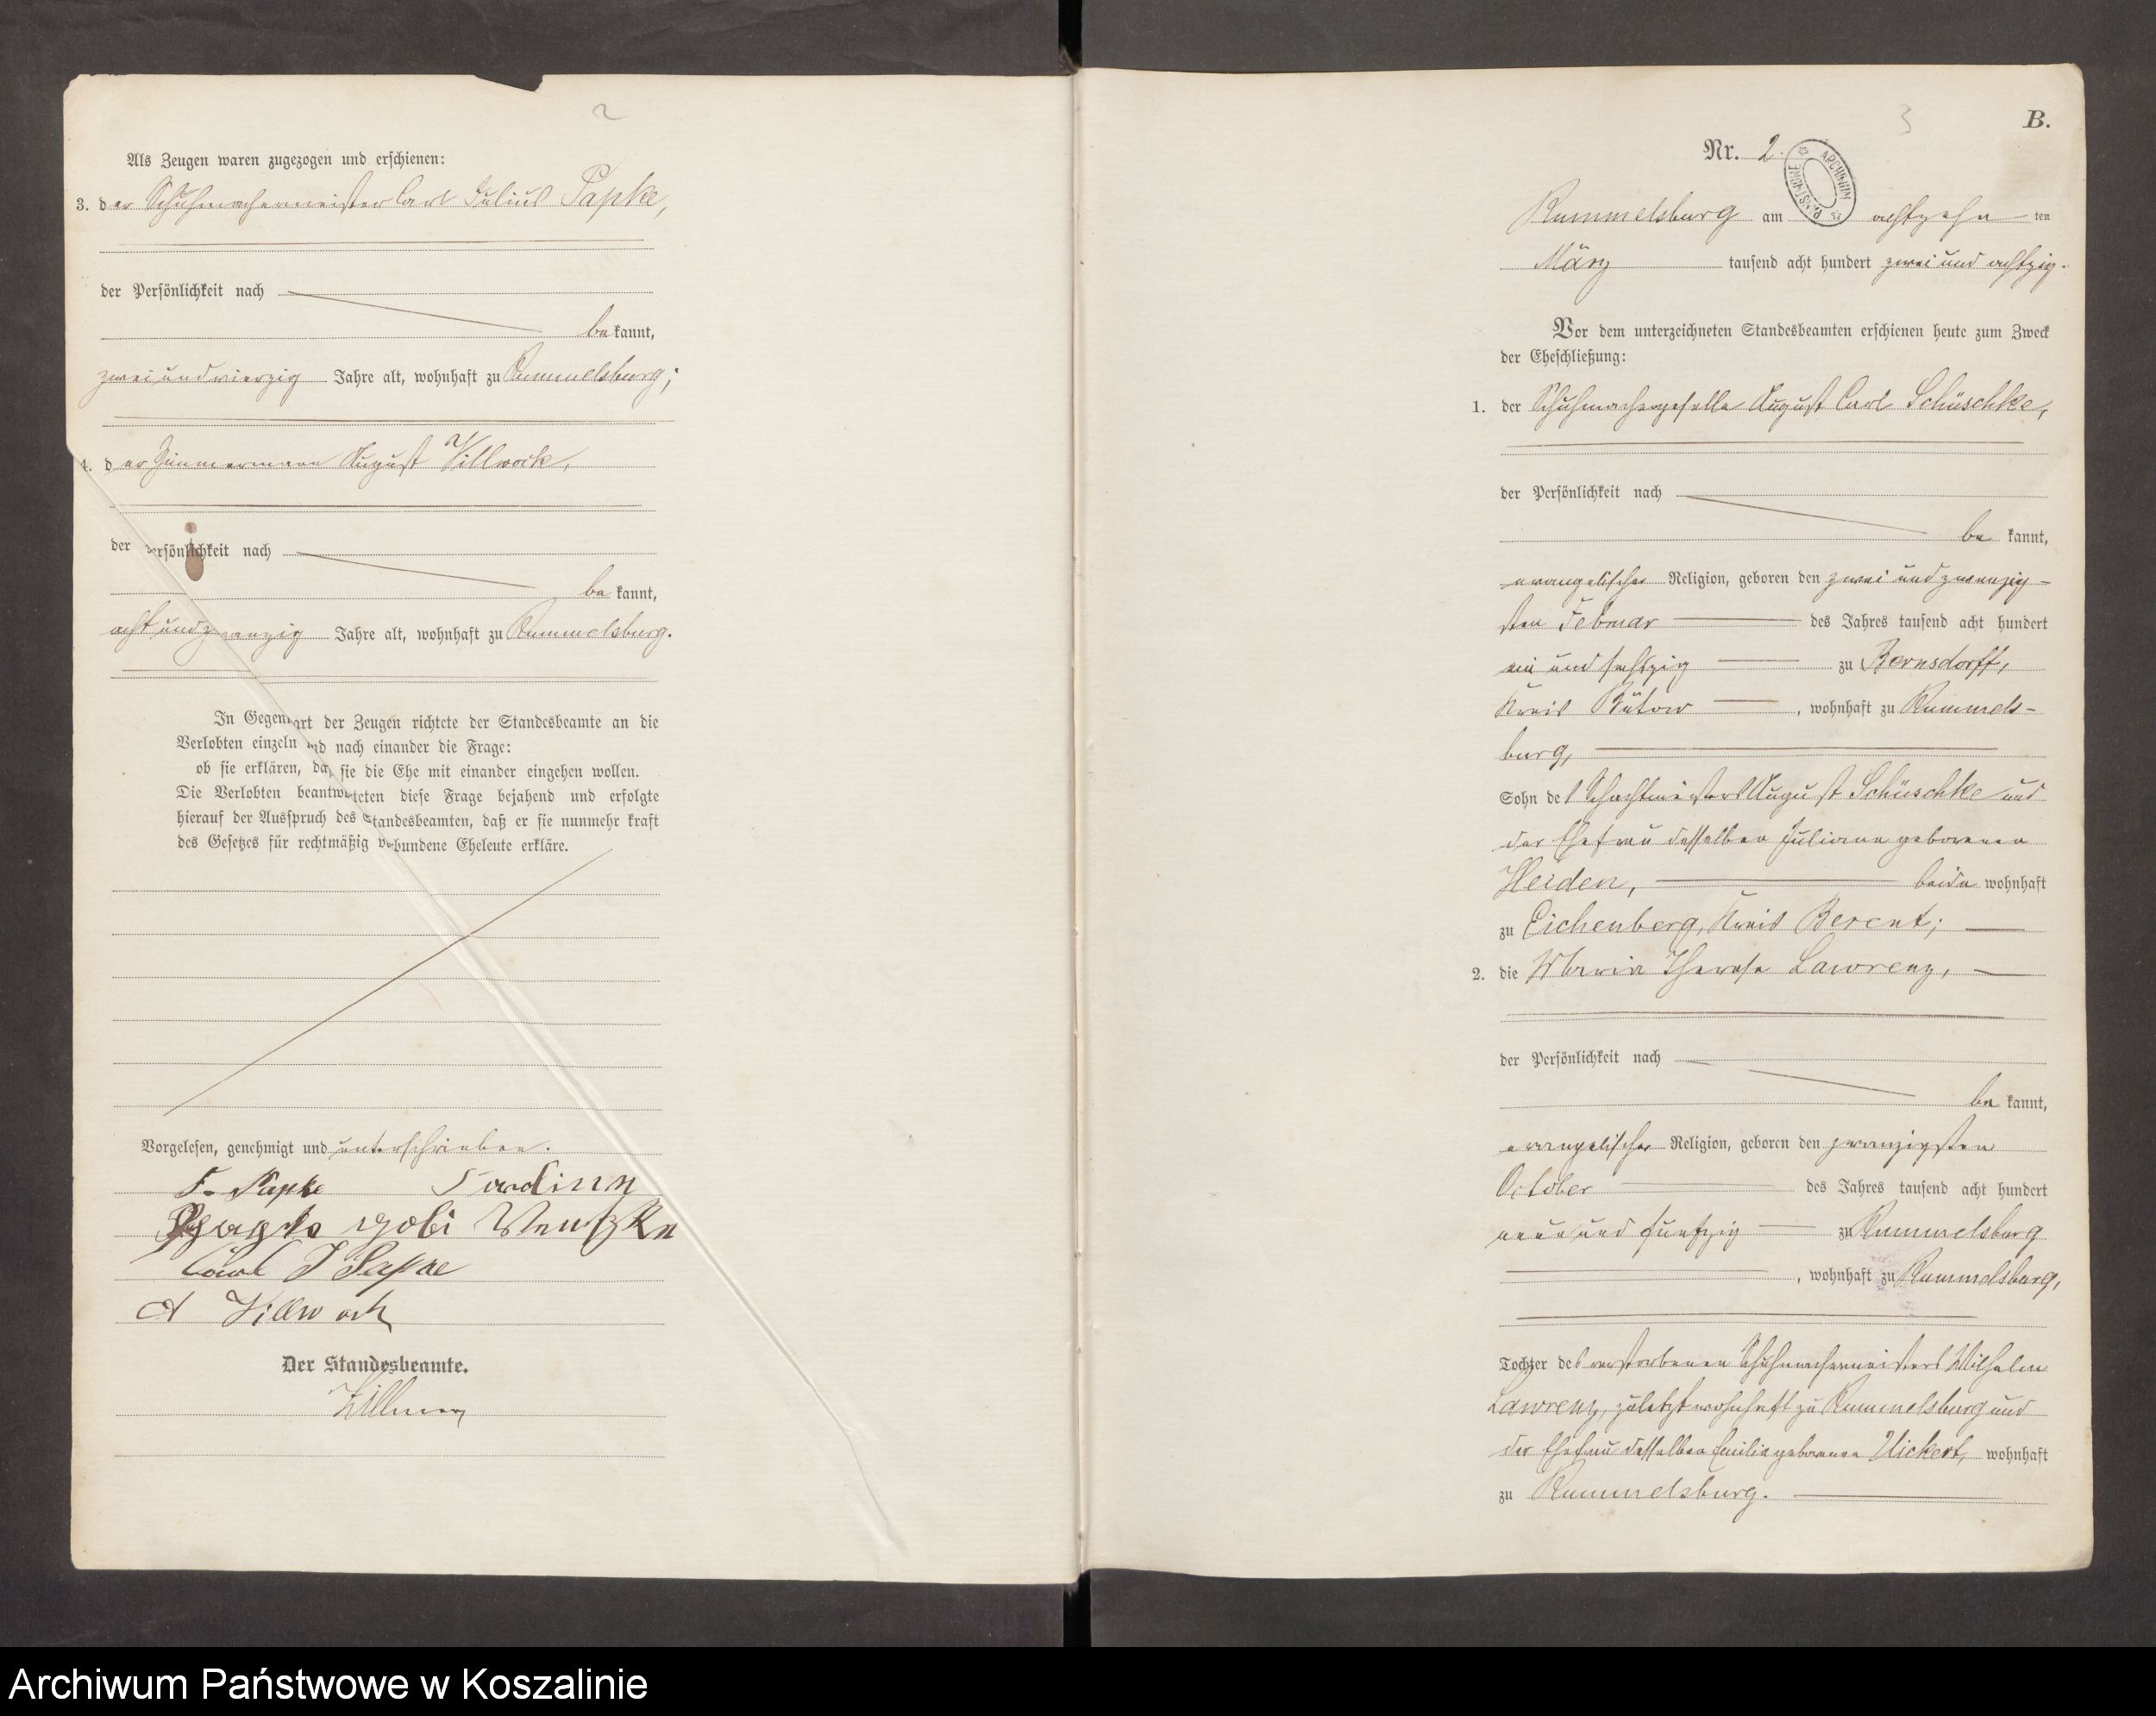 2
Als Zeugen waren zugezogen und erschienen:
3. der Schuhmachermeister Carl Julius Papke,
der Persönlichkeit nach
bekannt,
zwei und vierzig Jahre alt, wohnhaft zu Rummelsburg;
4. der Zimmermann August Villwock,
der Persönlichkeit nach
bekannt,
acht und zwanzig Jahre alt, wohnhaft zu Rummelsburg.
In Gegenwart der Zeugen richtete der Standesbeamte an die
Verlobten einzeln und nach einander die Frage:
ob sie erklären, daß sie die Ehe mit einander eingehen wollen.
Die Verlobten beantworteten diese Frage bejahend und erfolgte
hierauf der Ausspruch des Standesbeamten, daß er sie nunmehr kraft
des Gesetzes für rechtmäßig verbundene Eheleute erkläre.
Vorgelesen, genehmigt und unterschrieben.
F. Papke
Carl J Papke
A Villwock
Der Standesbeamte.
3
B.
Nr. 2.
ARCHIWUM PAŃSTWOWE
Rummelsburg am achtzehn ten
März tausend acht hundert zwei und achtzig.
Vor dem unterzeichneten Standesbeamten erschienen heute zum Zweck
der Eheschließung:
1. der Schuhmachergeselle August Carl Schüschke,
der Persönlichkeit nach
be kannt,
evangelischer Religion, geboren den zwei und zwanzig-
sten Februar des Jahres tausend acht hundert
ein und sechzig zu Bernsdorff,
Kreis Bütow, wohnhaft zu Rummels-
burg,
Sohn des Schachtmeisters August Schüschke und
der Ehefrau desselben Juliane geborenen
Heiden, beide wohnhaft
zu Eichenberg, Kreis Berent;
2. die Maria Therese Lawrenz,
der Persönlichkeit nach
be kannt,
evangelischer Religion, geboren den zwanzigsten
October des Jahres tausend acht hundert
neun und funfzig zu Rummelsburg
, wohnhaft zu Rummelsburg,
Tochter des verstorbenen Schuhmachermeisters Wilhelm
Lawrenz, zuletzt wohnhaft zu Rummelsburg und
der Ehefrau desselben Emilie geborenen Uickert, wohnhaft
zu Rummelsburg.
Archiwum Państwowe w Koszalinie